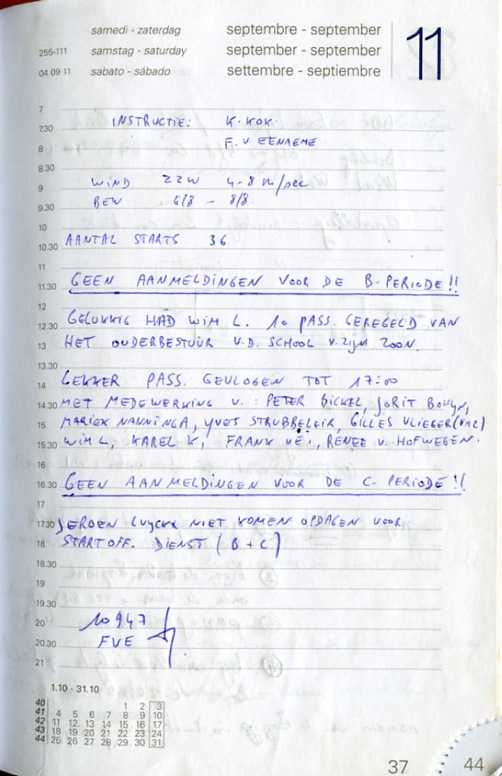 samedi - zaterdag septembre - september
255-111 samstag - saturday september - september 11
04 09 11 sabato - sábado settembre - septiembre
7
7.30 INSTRUCTIE: K. KOK.
8 F. V EENAEME
8.30
9 WIND ZZW 4-8 M/sec
9.30 BEW 6/8 - 8/8.
10
10.30 AANTAL STARTS 36
11
11.30 GEEN AANMELDINGEN VOOR DE B-PERIODE!!
12
12.30 GELUKKIG HAD WIM L. 10 PASS. GEREGELD VAN
13 HET OUDERBESTUUR V.D. SCHOOL V. ZIJN ZOON.
13.30
14 LEKKER PASS. GEVLOGEN TOT 17:00
14.30 MET MEDEWERKING V.: PETER BICKEL, JORIT
15 MARIEK NANNINGA, YVES STRUBBELEIR, GILLES VLIEGER
15.30 WIM L, KAREL K, FRANK VE., RENEE V. HOFWEGEN.
16
16.30 GEEN AANMELDINGEN VOOR DE C-PERIODE!!
17
17.30 JEROEN NIET KOMEN OPDAGEN VOOR
18 START OFF. DIENST (B+C)
18.30
19
19.30
20 10947
20.30 FVE
21
1.10 - 31.10
40 1 2 3
41 4 5 6 7 8 9 10
42 11 12 13 14 15 16 17
43 18 19 20 21 22 23 24
44 25 26 27 28 29 30 31
37 44